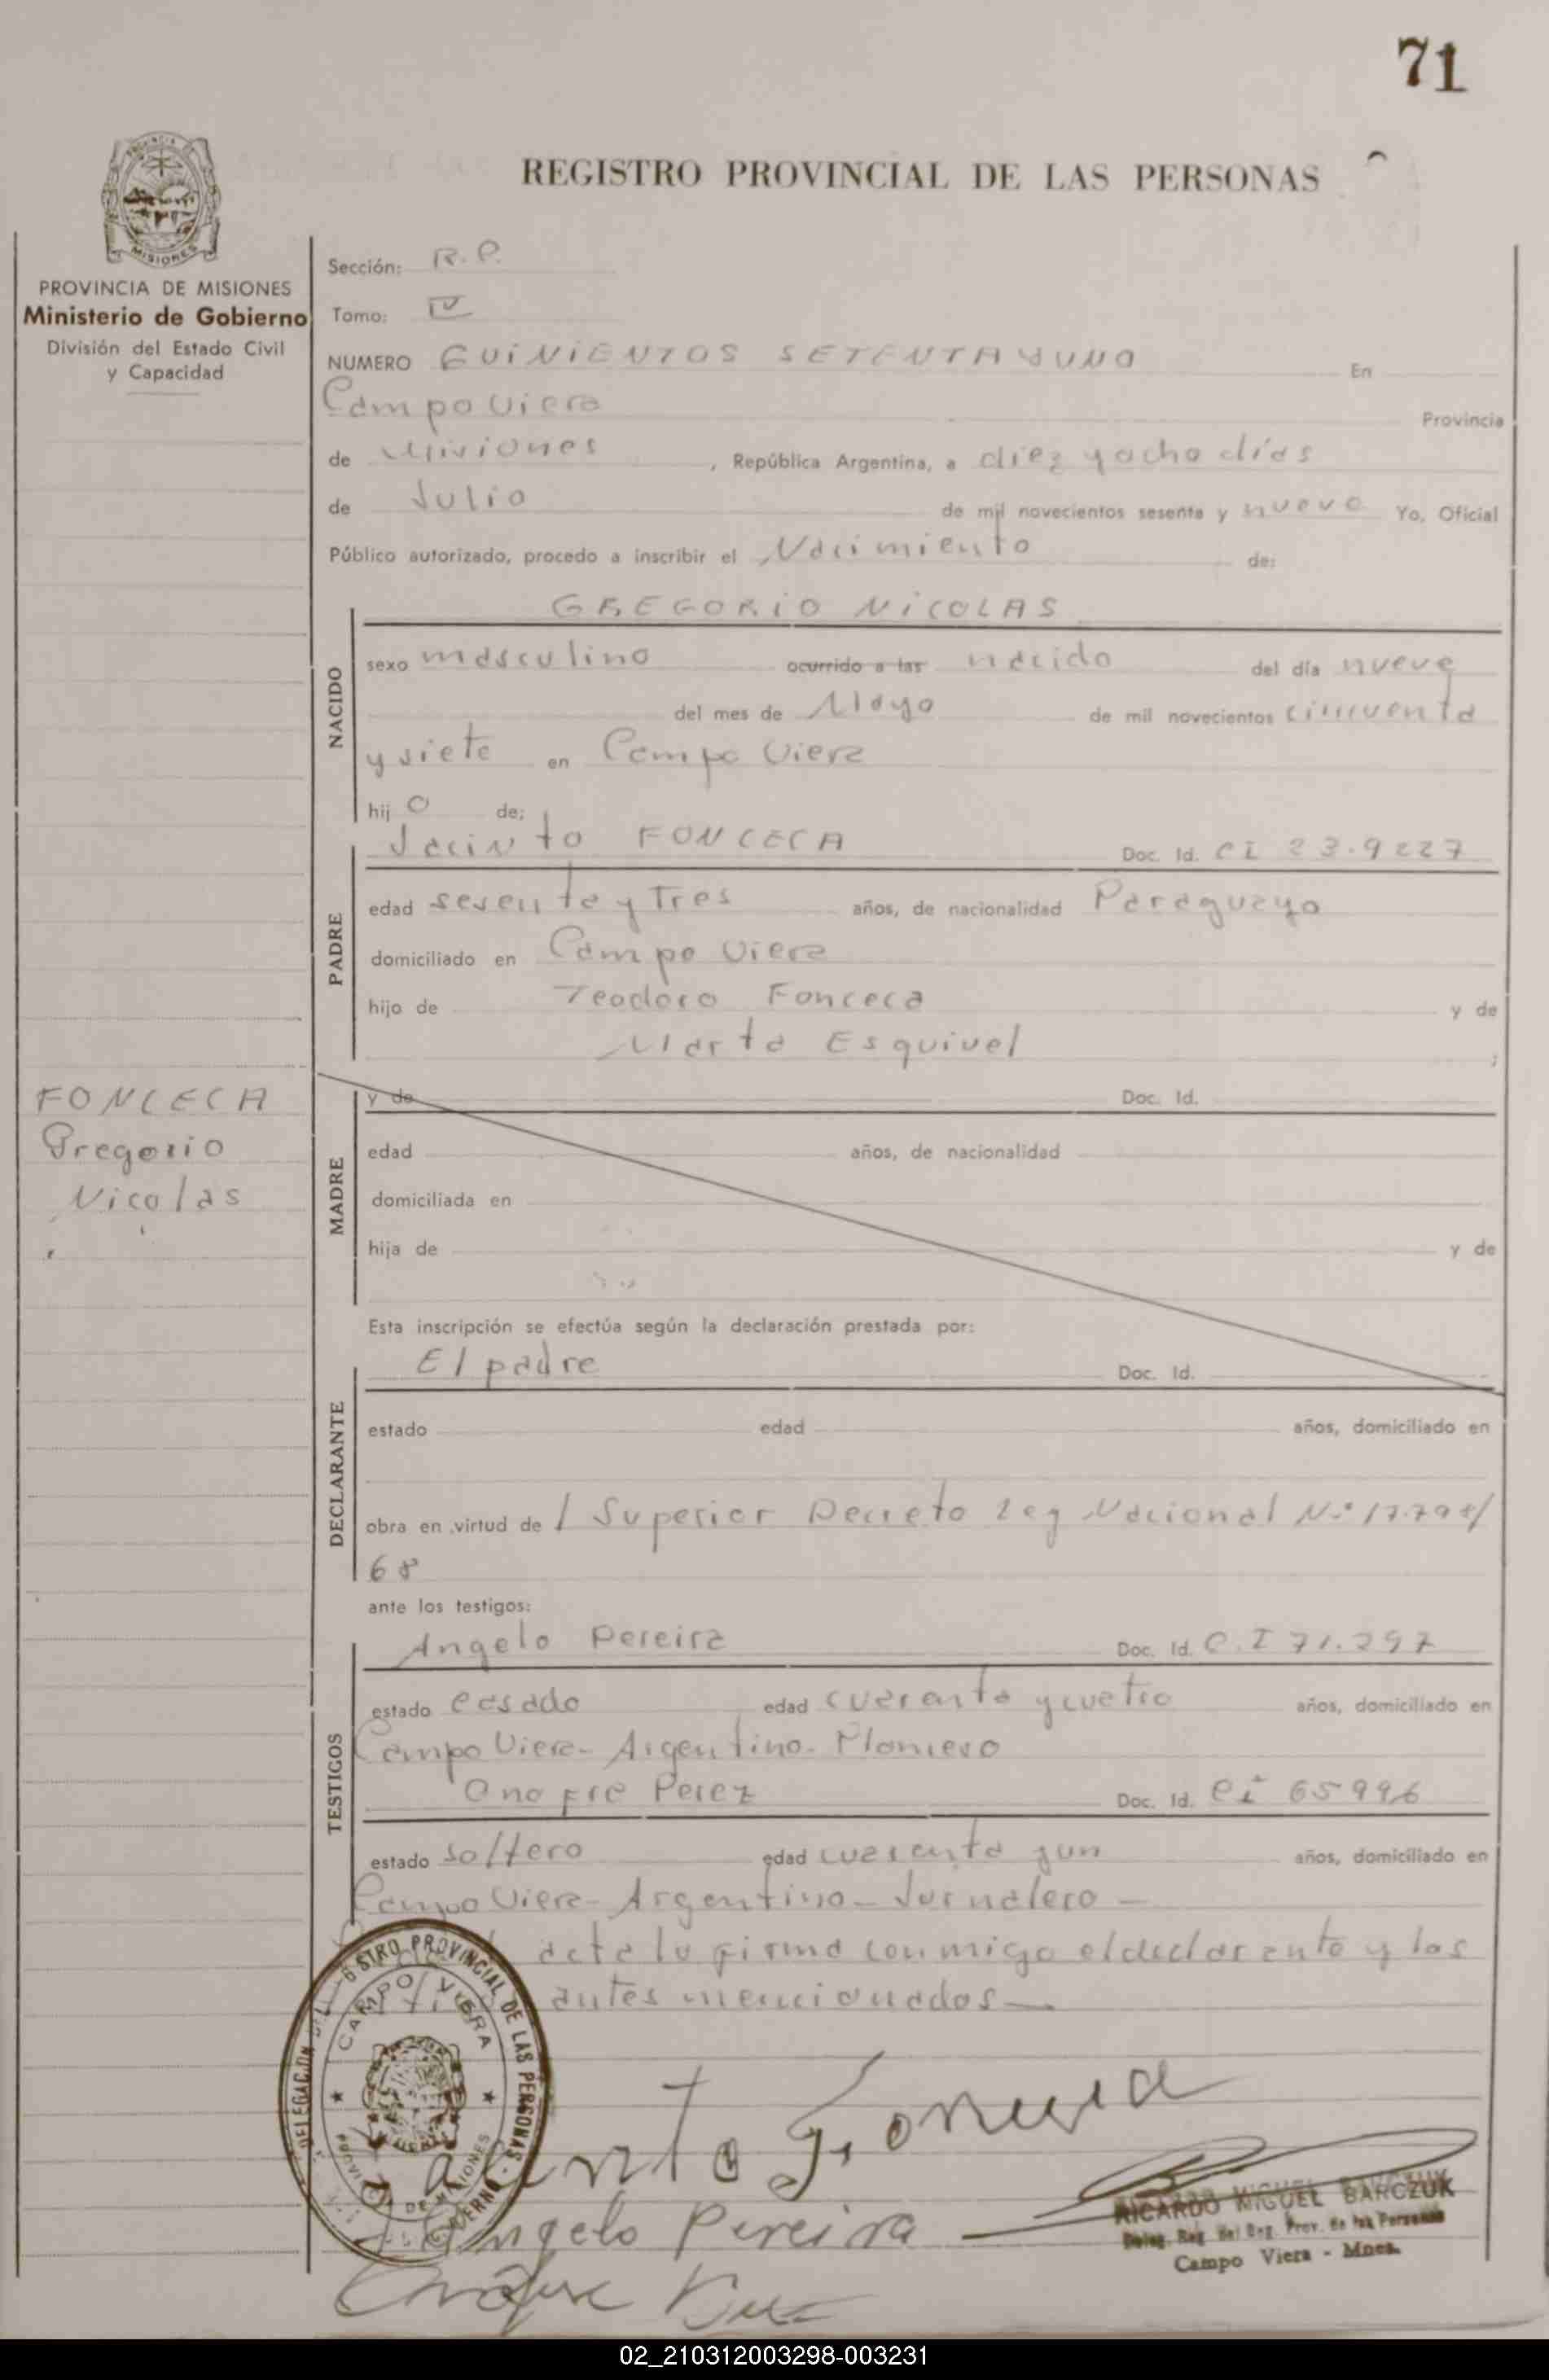 71
REGISTRO PROVINCIAL DE LAS PERSONAS
MISIONES
PROVINCIA DE MISIONES
Ministerio de Gobierno
División del Estado Civil
y Capacidad
Sección: R.P.
Tomo: IV
NUMERO QUINIENTOS SETENTA Y UNO En
Campo Viera Provincia
de Misiones, República Argentina, a diez y ocho días
de Julio de mil novecientos sesenta y nueve Yo, Oficial
Público autorizado, procedo a inscribir el Nacimiento de:
GREGORIO NICOLAS
NACIDO
sexo masculino ocurrido a las nacido del día nueve
del mes de Mayo de mil novecientos cincuenta
y siete en Campo Viera
hijo de:
Jacinto FONCECA Doc. Id. CI 23.9227
PADRE
edad sesenta y Tres años, de nacionalidad Paraguayo
domiciliado en Campo Viera
hijo de Teodoro Fonceca y de
Marta Esquivel ;
FONCECA
Gregorio
Nicolas
MADRE
y de Doc. Id.
edad años, de nacionalidad
domiciliada en
hija de y de
Esta inscripción se efectúa según la declaración prestada por:
El padre Doc. Id.
DECLARANTE
estado edad años, domiciliado en
obra en virtud de / Superior Decreto Ley Nacional N.° 17.798/
68
ante los testigos:
Angelo Pereira Doc. Id. C.I 71.297
TESTIGOS
estado casado edad cuarenta y cuatro años, domiciliado en
Campo Viera- Argentino-
Onofre Perez Doc. Id. Ci 65996
estado soltero edad cuarenta y un años, domiciliado en
Campo Viera- Argentino- Jornalero-
acta la firma conmigo el declarante y los
antes mencionados-
DELEGACION DEL REGISTRO PROVINCIAL DE LAS PERSONAS
CAMPO VIERA
DE MISIONES
Jacinto Fonceca
Angelo Pereira
RICARDO MIGUEL BARCZUK
Deleg. Reg. del Reg. Prov. de las Personas
Campo Viera - Mnes.
02_210312003298-003231